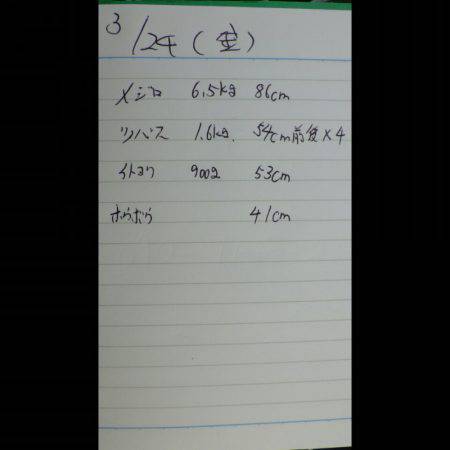 3/24(金)
メジロ 6.5kg 86cm
ツバス 1.6kg. 54cm前後×4
イトヨリ 900g 53cm
ホウボウ 41cm